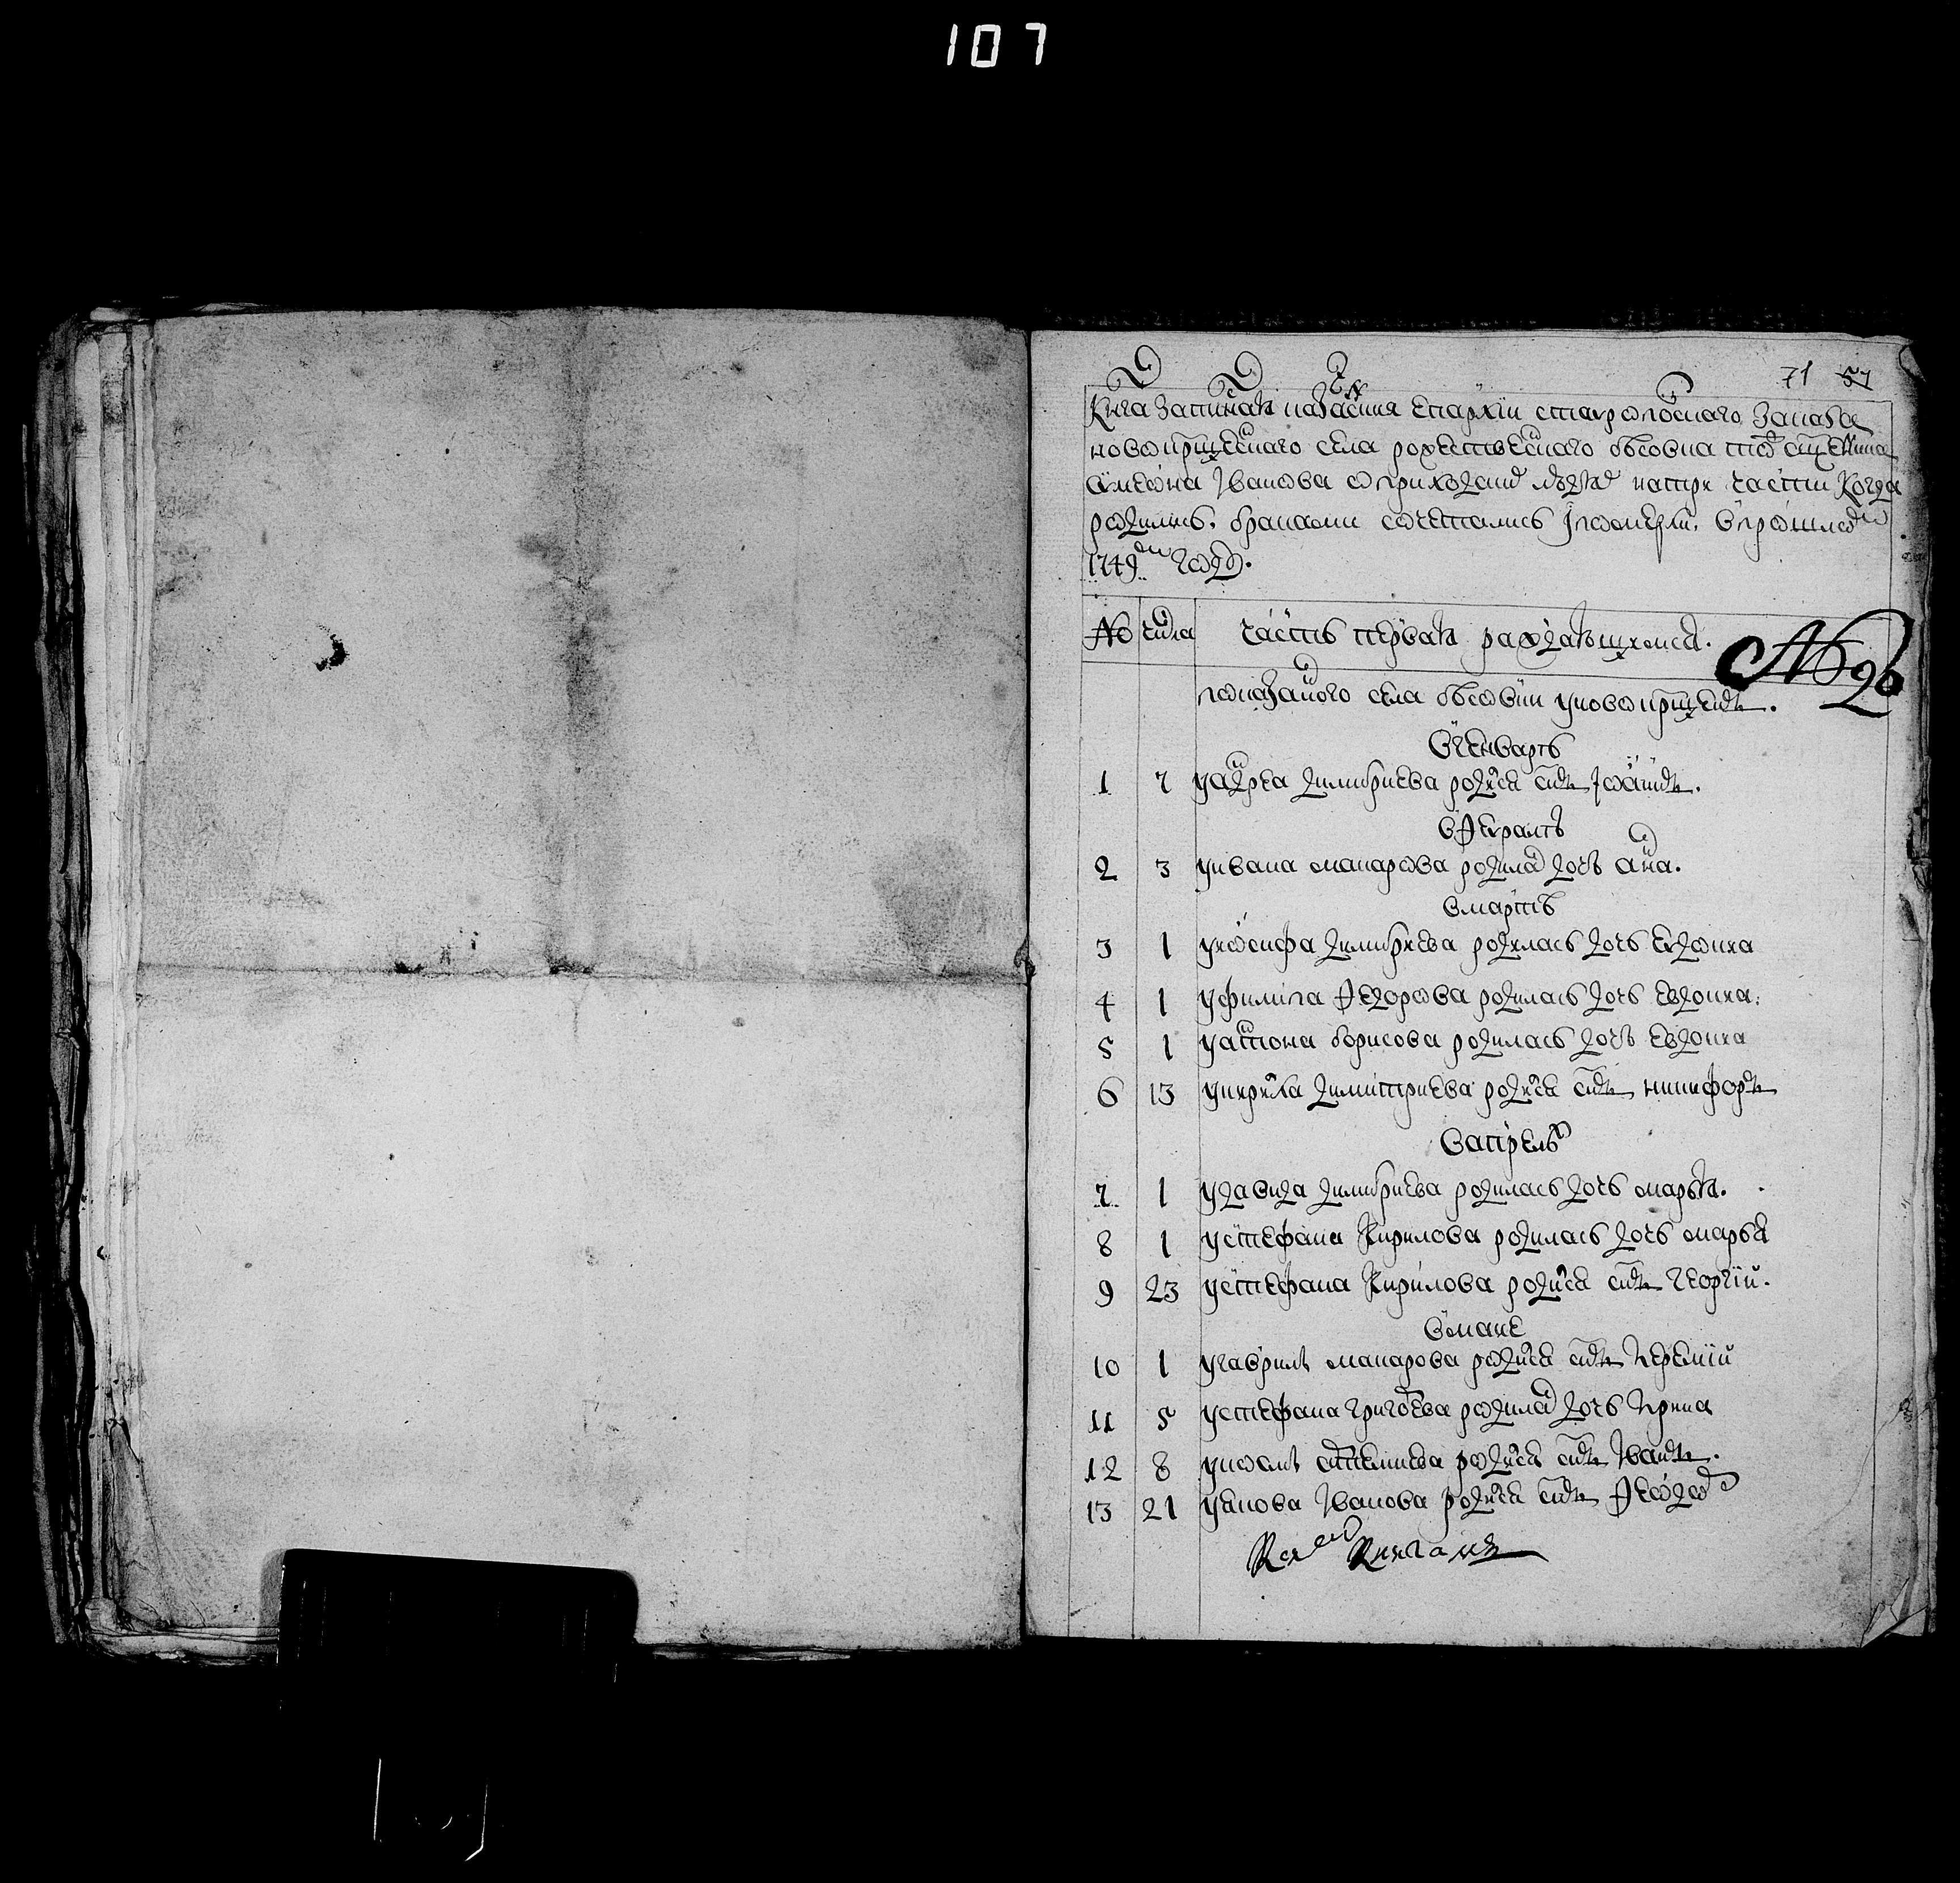 107
71 57
Книга записная казанския епархии ставропольскаго заказа
новокрещенаго села рожественаго обсовка тож священника
Симеона Иванова о приходских людях на три части когда
родились, браками сочетались и померли, в прошлом
1749 м году.
№ числа часть первая раждающихся.
показаного села обсовки у новокрещенъ.
№ 96
в генваръ
1 7 у андреа димитриева родися сынъ Іоаннъ.
в февралъ
2 3 у ивана макарова родилас дочь анна.
в мартъ
3 1 у иосифа димитриева родилась дочь евдокиа
4 1 у филипа федорова родилась дочь евдокиа.
5 1 у антона борисова родилась дочь евдокиа
6 13 у кирила димитриева родися сынъ никифоръ
в апрель
7 1 у давида димитриева родилась дочь марья.
8 1 у стефана Кирилова родилась дочь марья
9 23 у стефана Кирилова родися сынъ георгий.
в мане
10 1 у гаврила макарова родися сынъ иеремий
11 5 у стефана григорева родилас дочь ирина
12 8 родися сынъ Иванъ.
13 21 у якова Иванова родися сынъ феодор